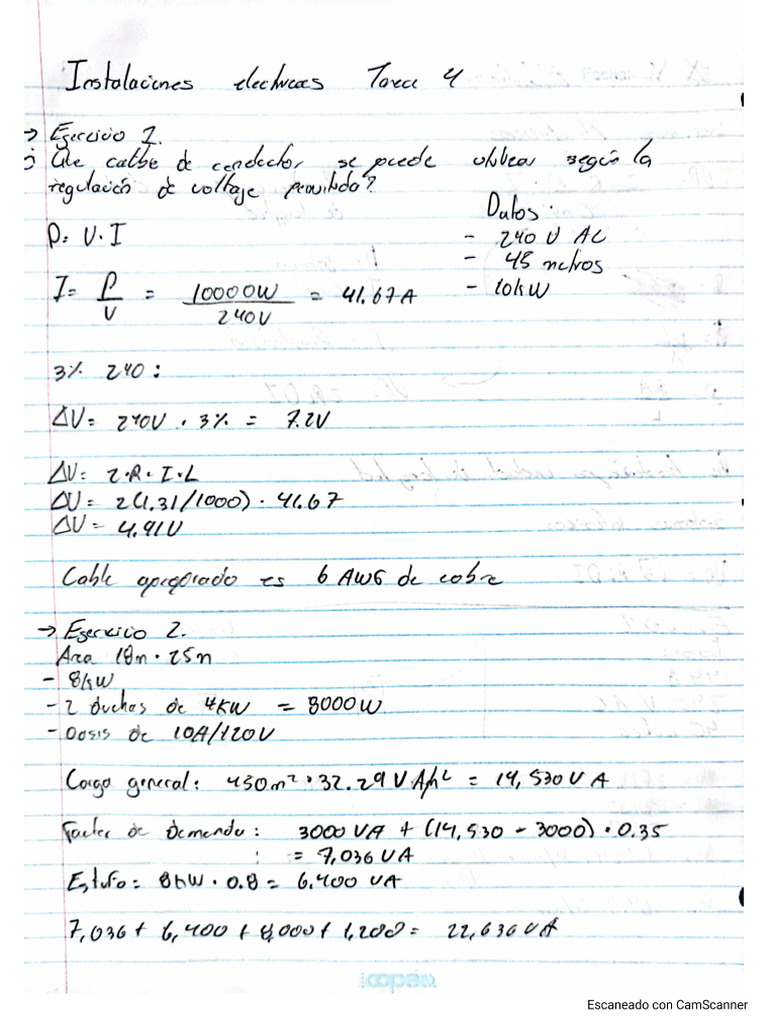 Instalaciones electricas Tarea 4
→ Ejercicio 1.
¿ Que calibe de conductor se puede utilizar según la
regulación de voltaje permitida?
Datos:
P= V·I
- 240 V AC
- 45 metros
I= P/V = 10000W/240V = 41.67A
- 10kW
3% 240:
ΔV= 240V · 3% = 7.2V
ΔV= 2·R·I·L
ΔV= 2(1.31/1000) · 41.67
ΔV= 4.91V
Cable apropiado es 6 AWG de cobre
→ Ejercicio 2.
Area 18m · 25m
- 8kW
- 2 duchas de 4KW = 8000W
- de 10A/120V
Carga general: 450m² · 32.29 VA/m² = 14,530 VA
Factor de Demanda: 3000 VA + (14,530 - 3000) · 0.35
: = 7,036 VA
Estufa= 8kW · 0.8 = 6.400 VA
7,036 + 6,400 + 8,000 + 1,200 = 22,636 VA
copán
Escaneado con CamScanner